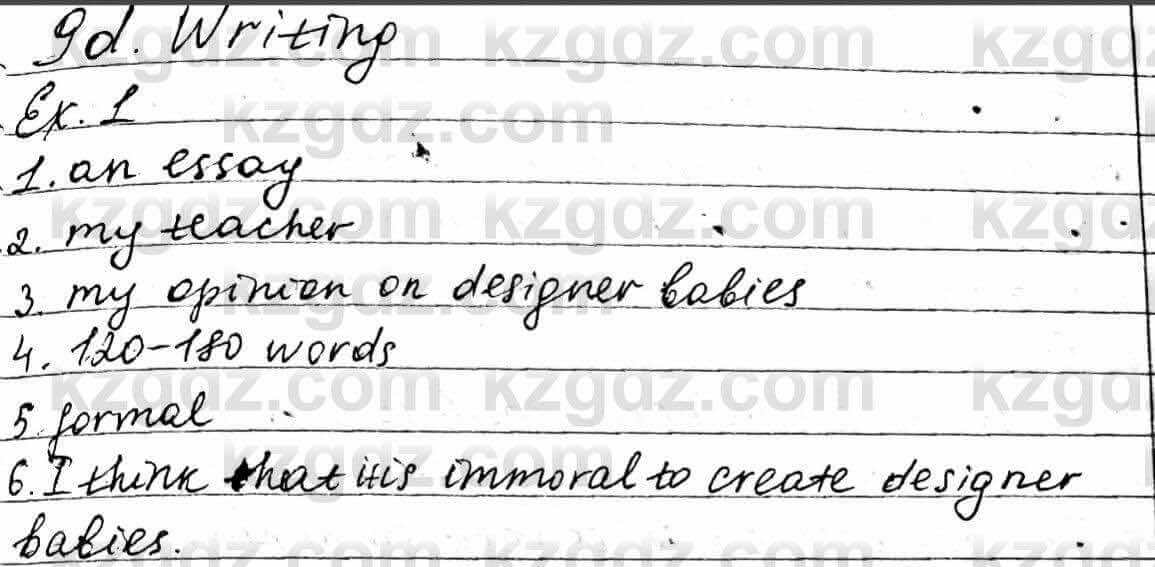 9d. Writing
Ex. 1
1. an essay
2. my teacher
3. my opinion on designer babies
4. 120-180 words
5. formal
6. I think that it is immoral to create designer
babies.
kzgdz.com